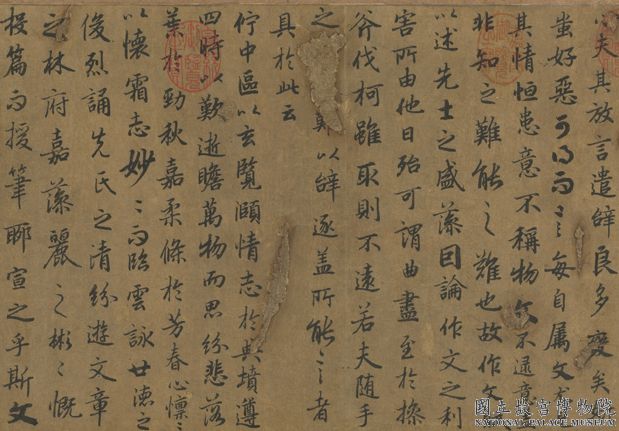 夫其放言遣辞良多變矣
蚩好惡可得而言每自属文
其情恒患意不稱物文不逮意
非知之難能之難也故作文
以述先士之盛藻因論作文之利
害所由他日殆可謂曲盡至於操
斧伐柯雖取則不遠若夫随手
之難以辞逐盖所能言者
具於此云
佇中區以玄覽頤情志於典墳遵
四時以歎逝瞻萬物而思紛悲落
葉於勁秋嘉柔條於芳春心懍〻
以懷霜志妙〻而臨雲詠世德之
俊烈誦先氏之清紛遊文章
之林府嘉藻麗之彬〻慨
投篇而援筆聊宣之乎斯文
國立故宮博物院
NATIONAL PALACE MUSEUM